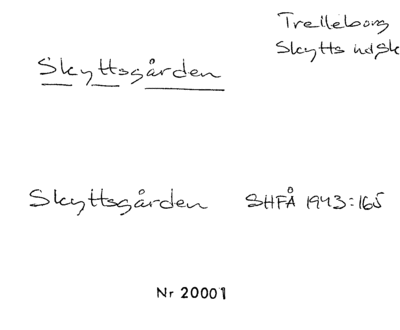 Trelleborg
Skytts hd, Sk
Skyttsgården
Skyttsgården SHFÅ 1943:165
Nr 20001